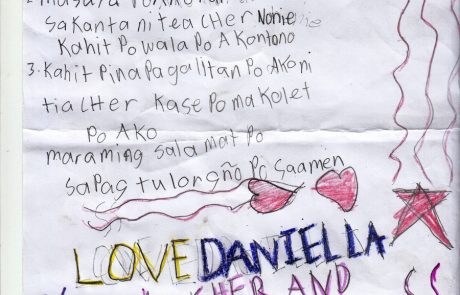 2. masaya
sa kanta ni tea cHer Nonie
Kahit Po wala Po A Kontono
3. Kahit Pina Pa galitan Po AKo ni
tia cHer Kase Po ma Kolet
Po AKO
maraming sala mat Po
sa pag tulong ño Po Saamen
LOVE DANIELLA
HER AND